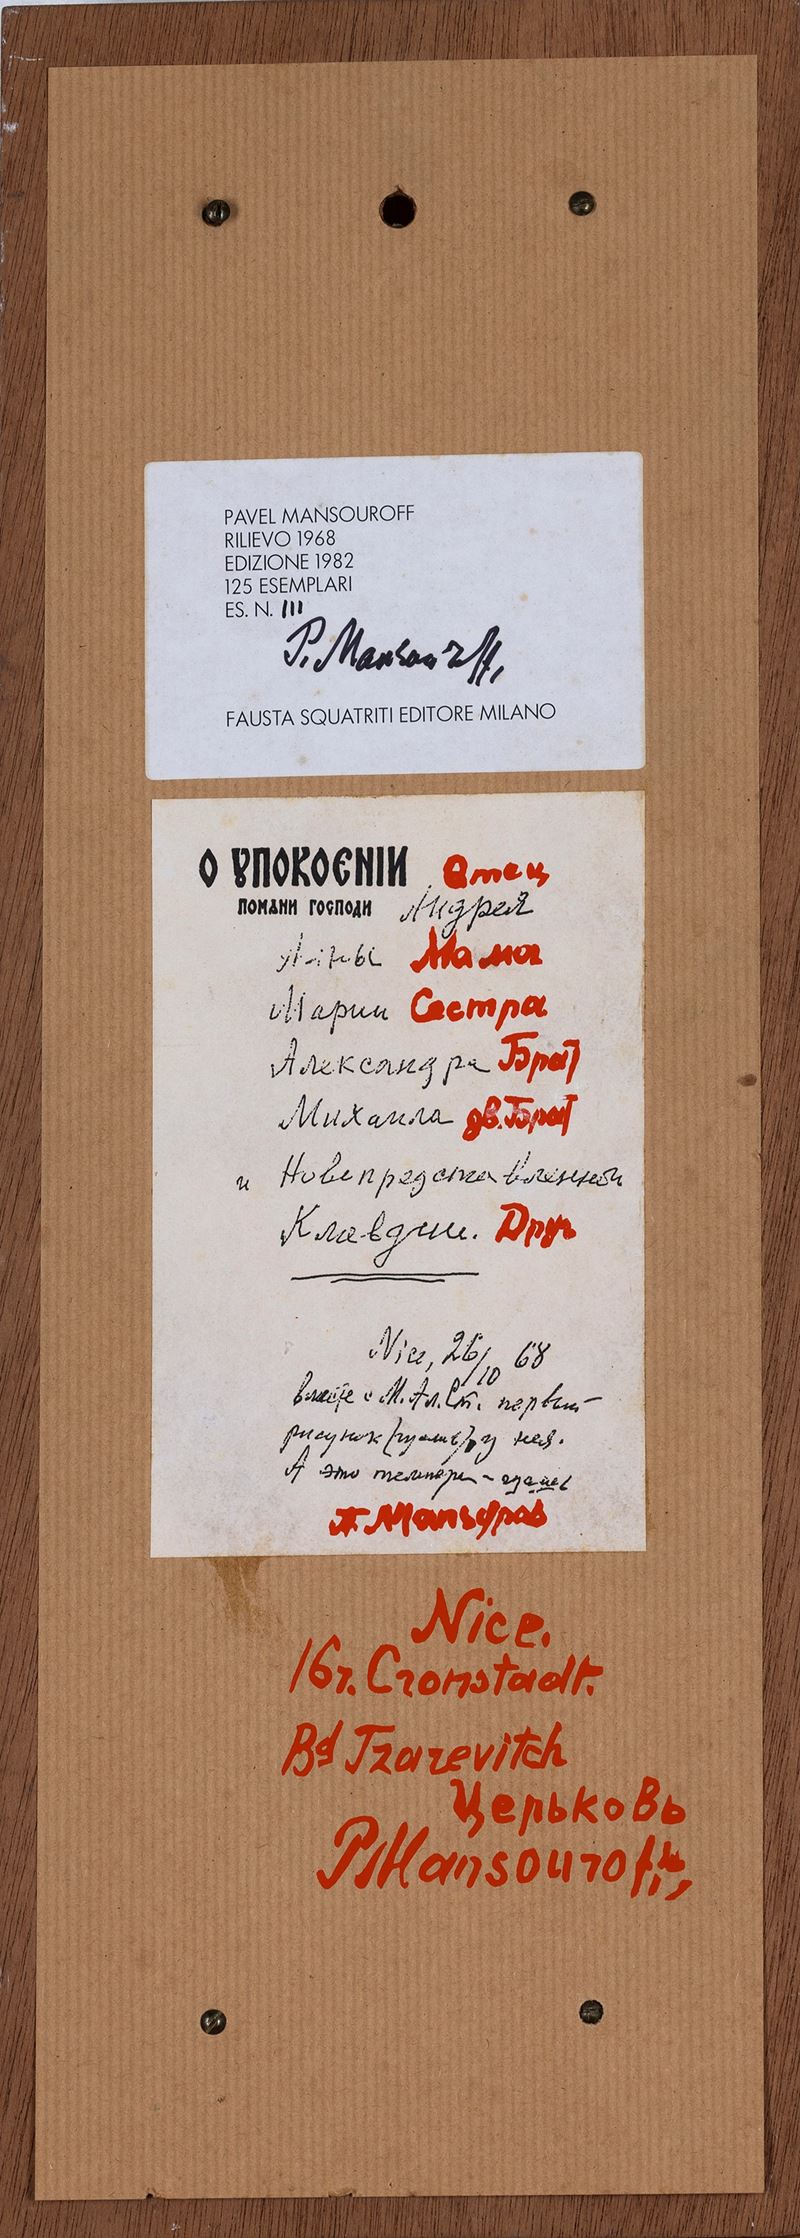 PAVEL MANSOUROFF
RILIEVO 1968
EDIZIONE 1982
125 ESEMPLARI
ES. N. III
P. Mansouroff,
FAUSTA SQUATRITI EDITORE MILANO
О УПОКОЄНІИ Отец
ПОМѦНИ ГОСПОДИ Андрея
Анны Мама
Марии Сестра
Александра Брат
Михаила дв. Брат
и Новопредставленной
Клавдии. Друг
Nice, 26/10 68
вместе с М. Ал. Ст. первый
рисунок у нея.
А это теперь -
П. Мансуров
Nice.
16 r. Cronstadt.
Bd Tzarevitch
Церьковь
P. Mansouroff,